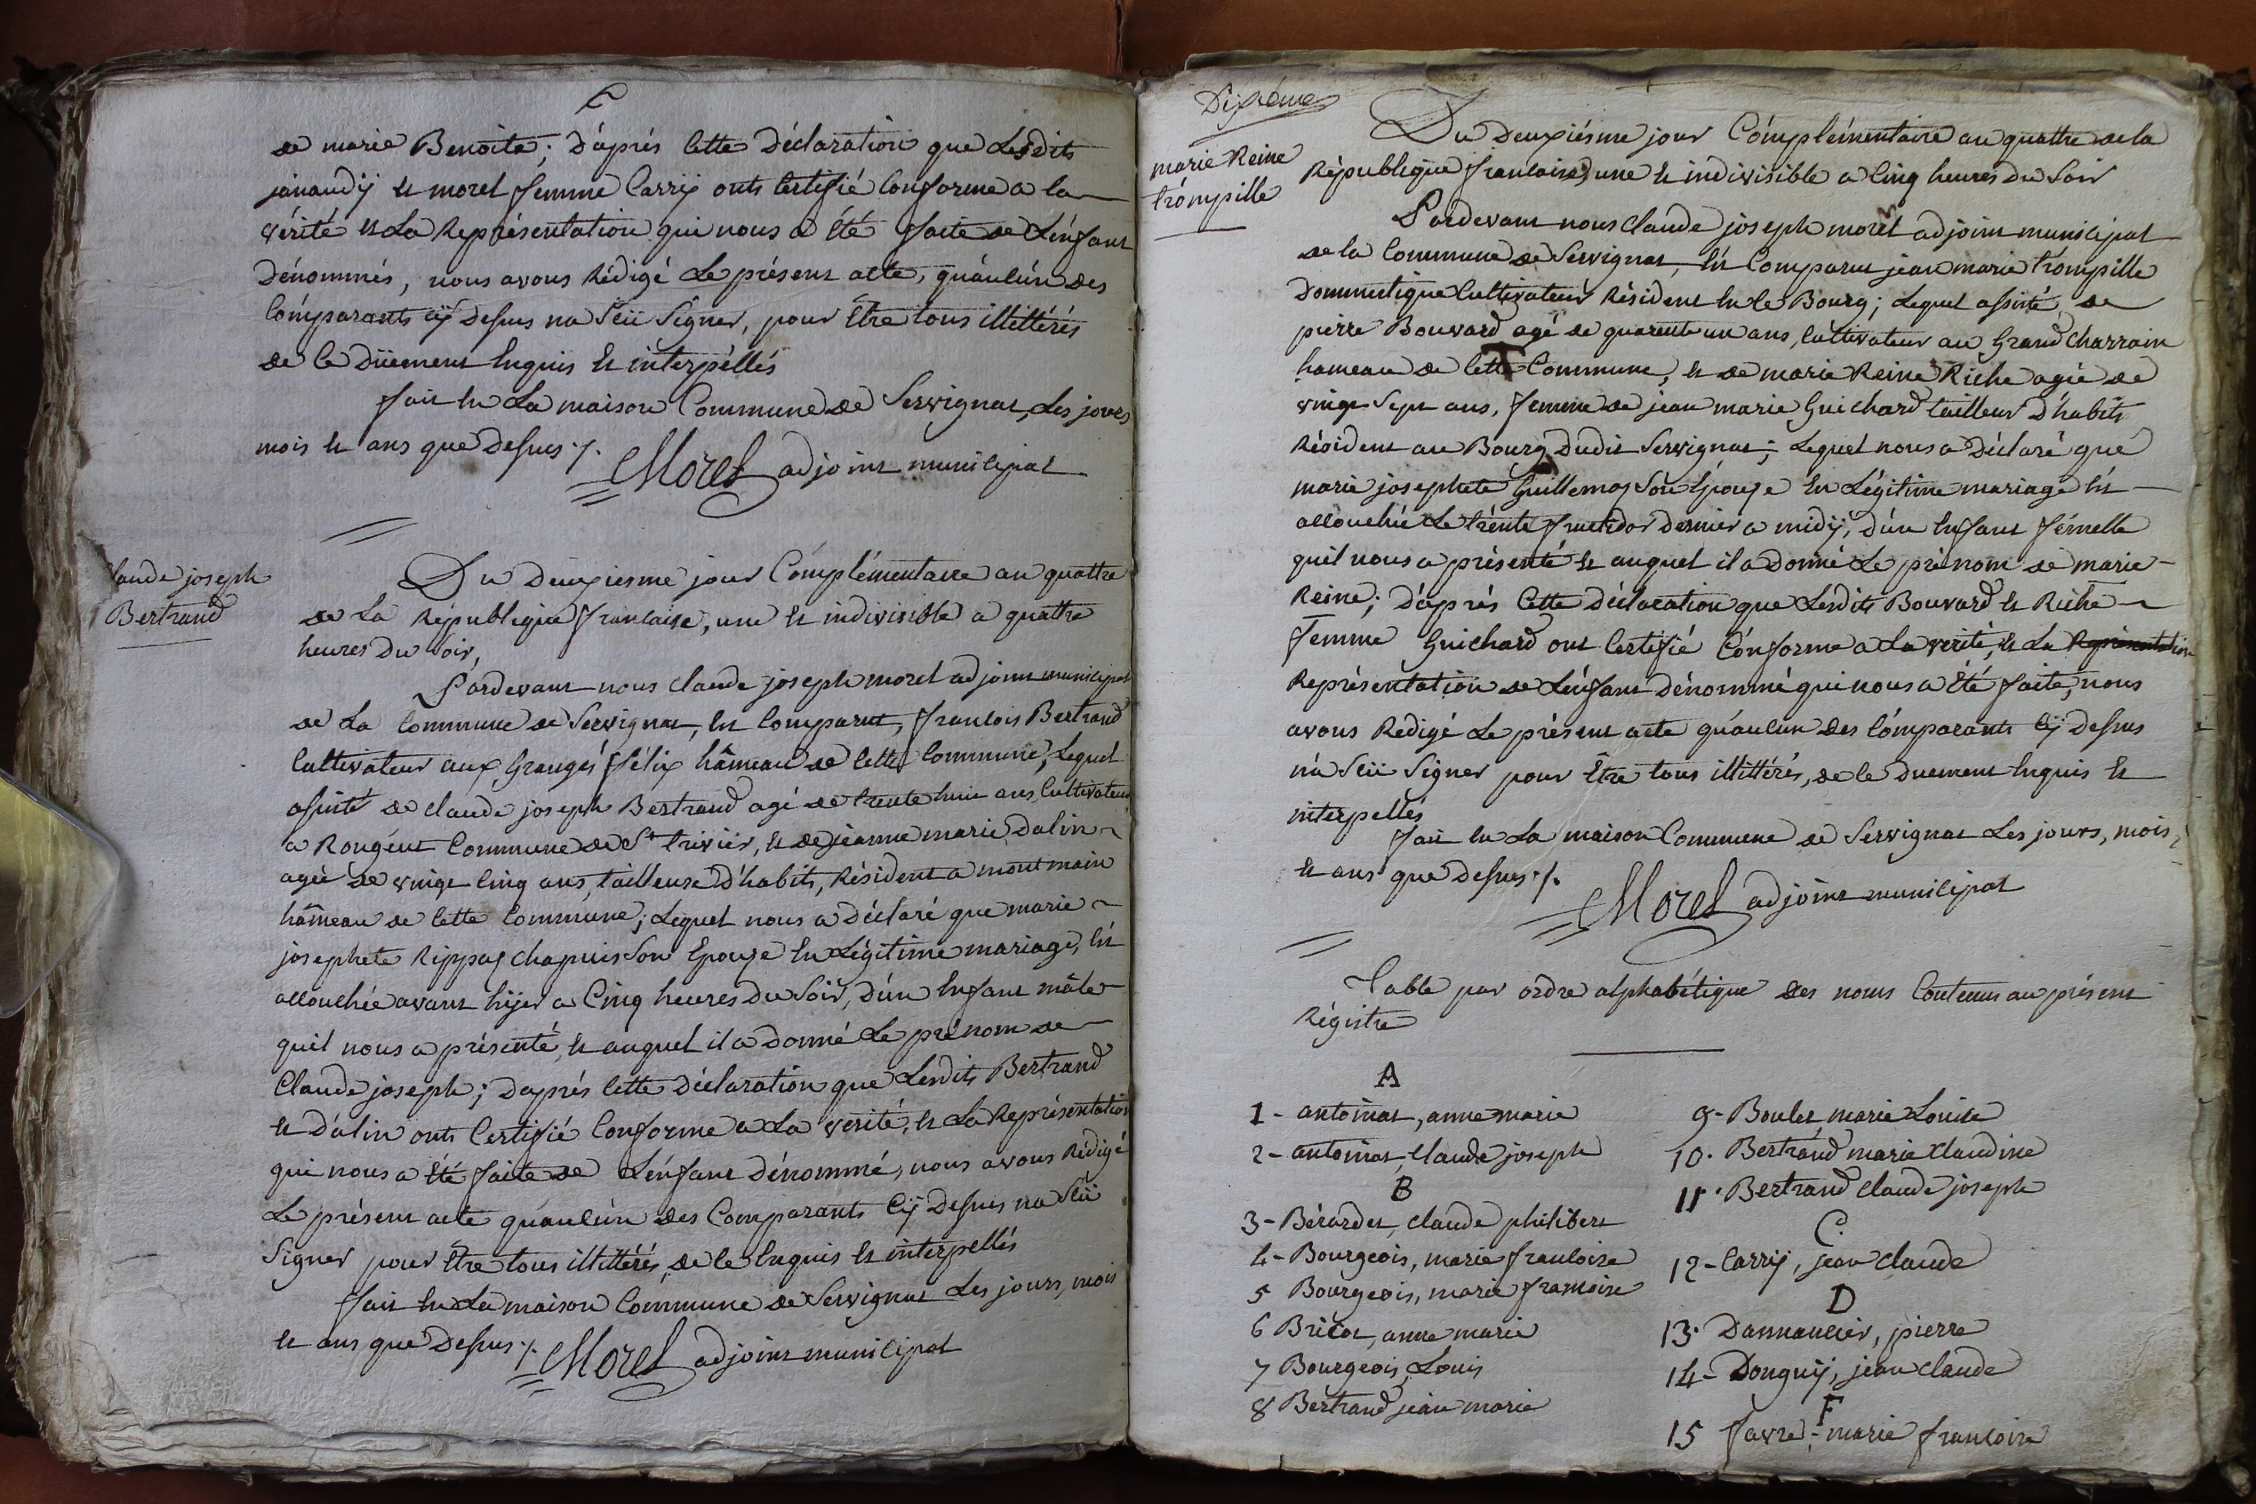 de marie Benoite; d'aprés cette Déclaration que Lesdits
janaudÿ et morel femme Carrÿ onts Certifié Conforme a la
vérité et La Représentation qui nous a été faite de L'énfant
Dénommés, nous avons Rédigé Le présent acte, qu'aucun des
Comparants cÿ Desus na sçü Signer, pour Etre tous illittérés
de ce Düement Enquis et interpéllés
fait En La maison Commune de Servignat, Les jours
mois et ans que Desus ./.
Morel adjoint municipal
Claude joseph
Bertrand
Du Deuxiesme jour Complémentaire an quattre
de La République francaise, une et indivisible a quattre
heures Du Soir,
Pardevant nous Claude joseph morel adjoint municipal
de La Commune de Servignat, Est Comparut, francois Bertrand
Cultivateur aux Granges félix hâmeau de Cette Commune, Lequel
assisté de Claude joseph Bertrand agé de trente huit ans, Cultivateur
a Rongént Commune de St triviér, et de jeanne marie Dalin
agée de vingt Cinq ans, tailleuse d'habits, Résident a montmain
hâmeau de Cette Commune; Lequel nous a Déclaré que marie
josephete Rippaz chapuis son Epouze En Légitime mariage, Est
accouchée avant hijer a Cinq heures Du Soir, d'ún Enfant mâle
quil nous a présenté, et auquel il a Donné Le prénom de
Claude joseph; Daprés Cette Déclaration que Lesdits Bertrand
et Dalin onts Certifié Conforme a La vérité, et La Représentation
qui nous a été faite de L'énfant Dénommé, nous avons Rédigé
Le présent acte qu'aucún des Comparants Cÿ Desus na sçü
Signer pour Etre tous illittérés, de ce Enquis et interpellés
fait En La maison Commune de Servignat Les jours, mois
et ans que Desus ./. Morel adjoint municipal
Dixiéme
marie Reine
trompille
Du Deuxiésme jour Complémentaire an quattre de la
République francaise, une et indivisible a Cinq heures du Soir
Pardevant nous Claude joseph morel adjoint municipal
de la Commune de Servignat, Est Comparut jean marie trompille
Dommestique Cultivateur Résident En le Bourg; Lequel assisté, de
pierre Bouvard agé de quarente un ans, Cultivateur au Grand Charrain
hameau de Cette Commune, et de marie Reine Riche agée de
vingt Sept ans, femme de jean marie Guichard tailleur D'habits
Résident au Bourg Dudit Servignat; Lequel nous a Déclaré que
marie josephete Guillemaz Son Epouze En Légitime mariage Est
accouchée Le trénte fructidor Dernier a midÿ, D'un Enfant fémelle
quil nous a présenté et auquel il a Donné Le prénom de marie
Reine; D'aprés Cette Déclaration que Lesdits Bouvard et Riche
femme Guichard ont Certifié Conforme a La verité, et La Représentation
Représentation de L'énfant Dénommé qui nous a été faite, nous
avons Redigé Le présent acte qu'aucun des Comparants Cÿ Desus
n'a Sçü Signer pour Etre tous illittérés, de ce Duement Enquis et
interpellés
fait En La maison Commune de Servignat Les jours, mois,
et ans que Desus ./.
Morel adjoint municipal
Table par ordre alphabétique des noms Contenus au présent
Régistre
A
1 - antoinat, anne marie
2 - antoinat, Claude joseph
B
3 - Bérardet, Claude philibert
4 - Bourgeois, marie francoise
5 Bourgeois, marie francoise
6 Bricot, anne marie
7 Bourgeois, Louis
8 Bertrand jean marie
9 - Boulet marie Louise
10 . Bertrand marie Claudine
11 . Bertrand Claude joseph
C.
12 - Carrÿ, jean Claude
D
13 . Dannancier, pierre
14 - Donguÿ, jean claude
F
15 favre, marie francoise